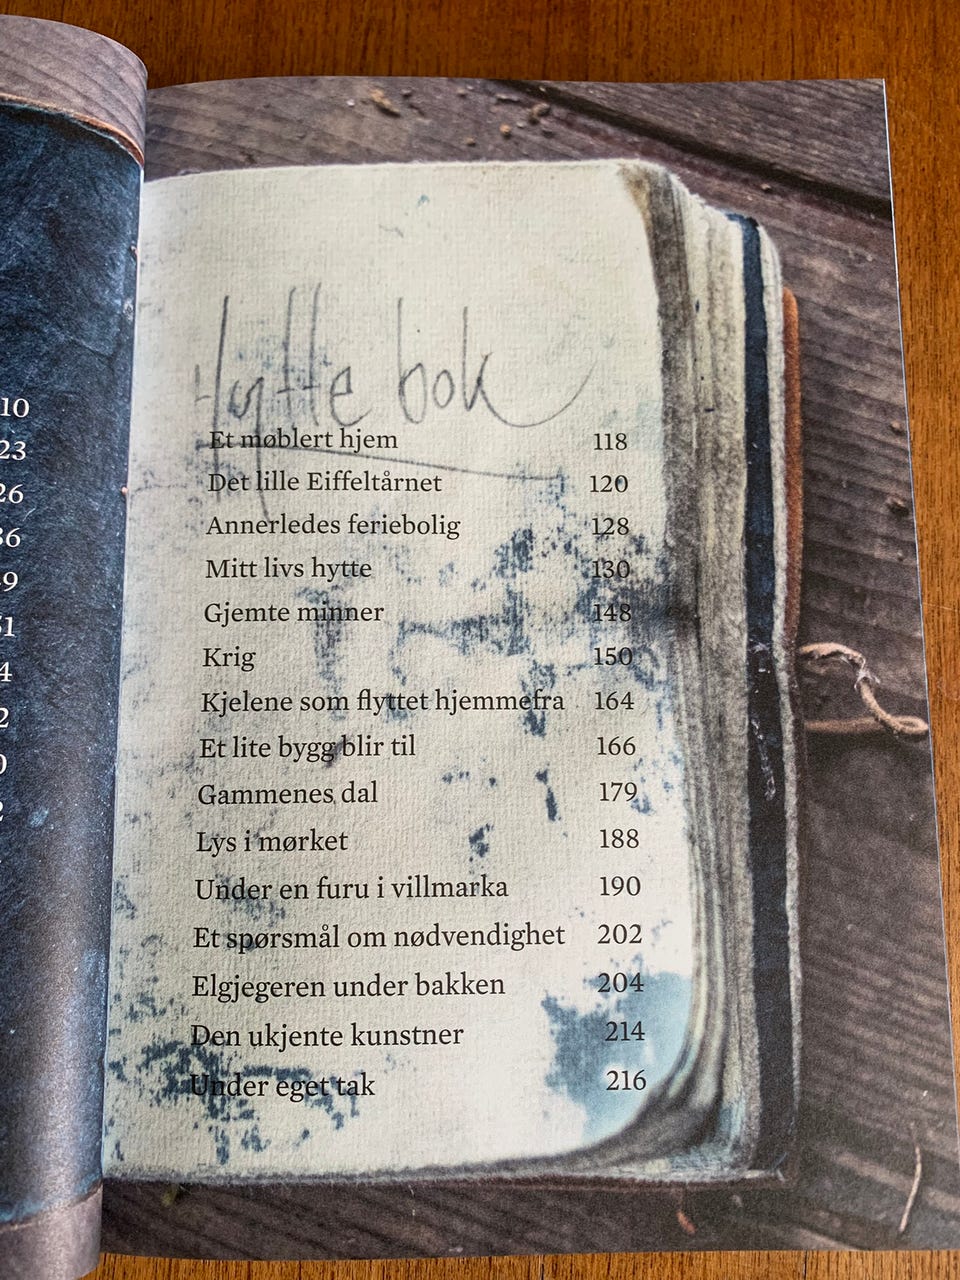 10
23
26
Hytte bok
Et møblert hjem 118
Det lille Eiffeltårnet 120
Annerledes feriebolig 128
Mitt livs hytte 130
Gjemte minner 148
Krig 150
Kjelene som flyttet hjemmefra 164
Et lite bygg blir til 166
Gammenes dal 179
Lys i mørket 188
Under en furu i villmarka 190
Et spørsmål om nødvendighet 202
Elgjegeren under bakken 204
Den ukjente kunstner 214
Under eget tak 216